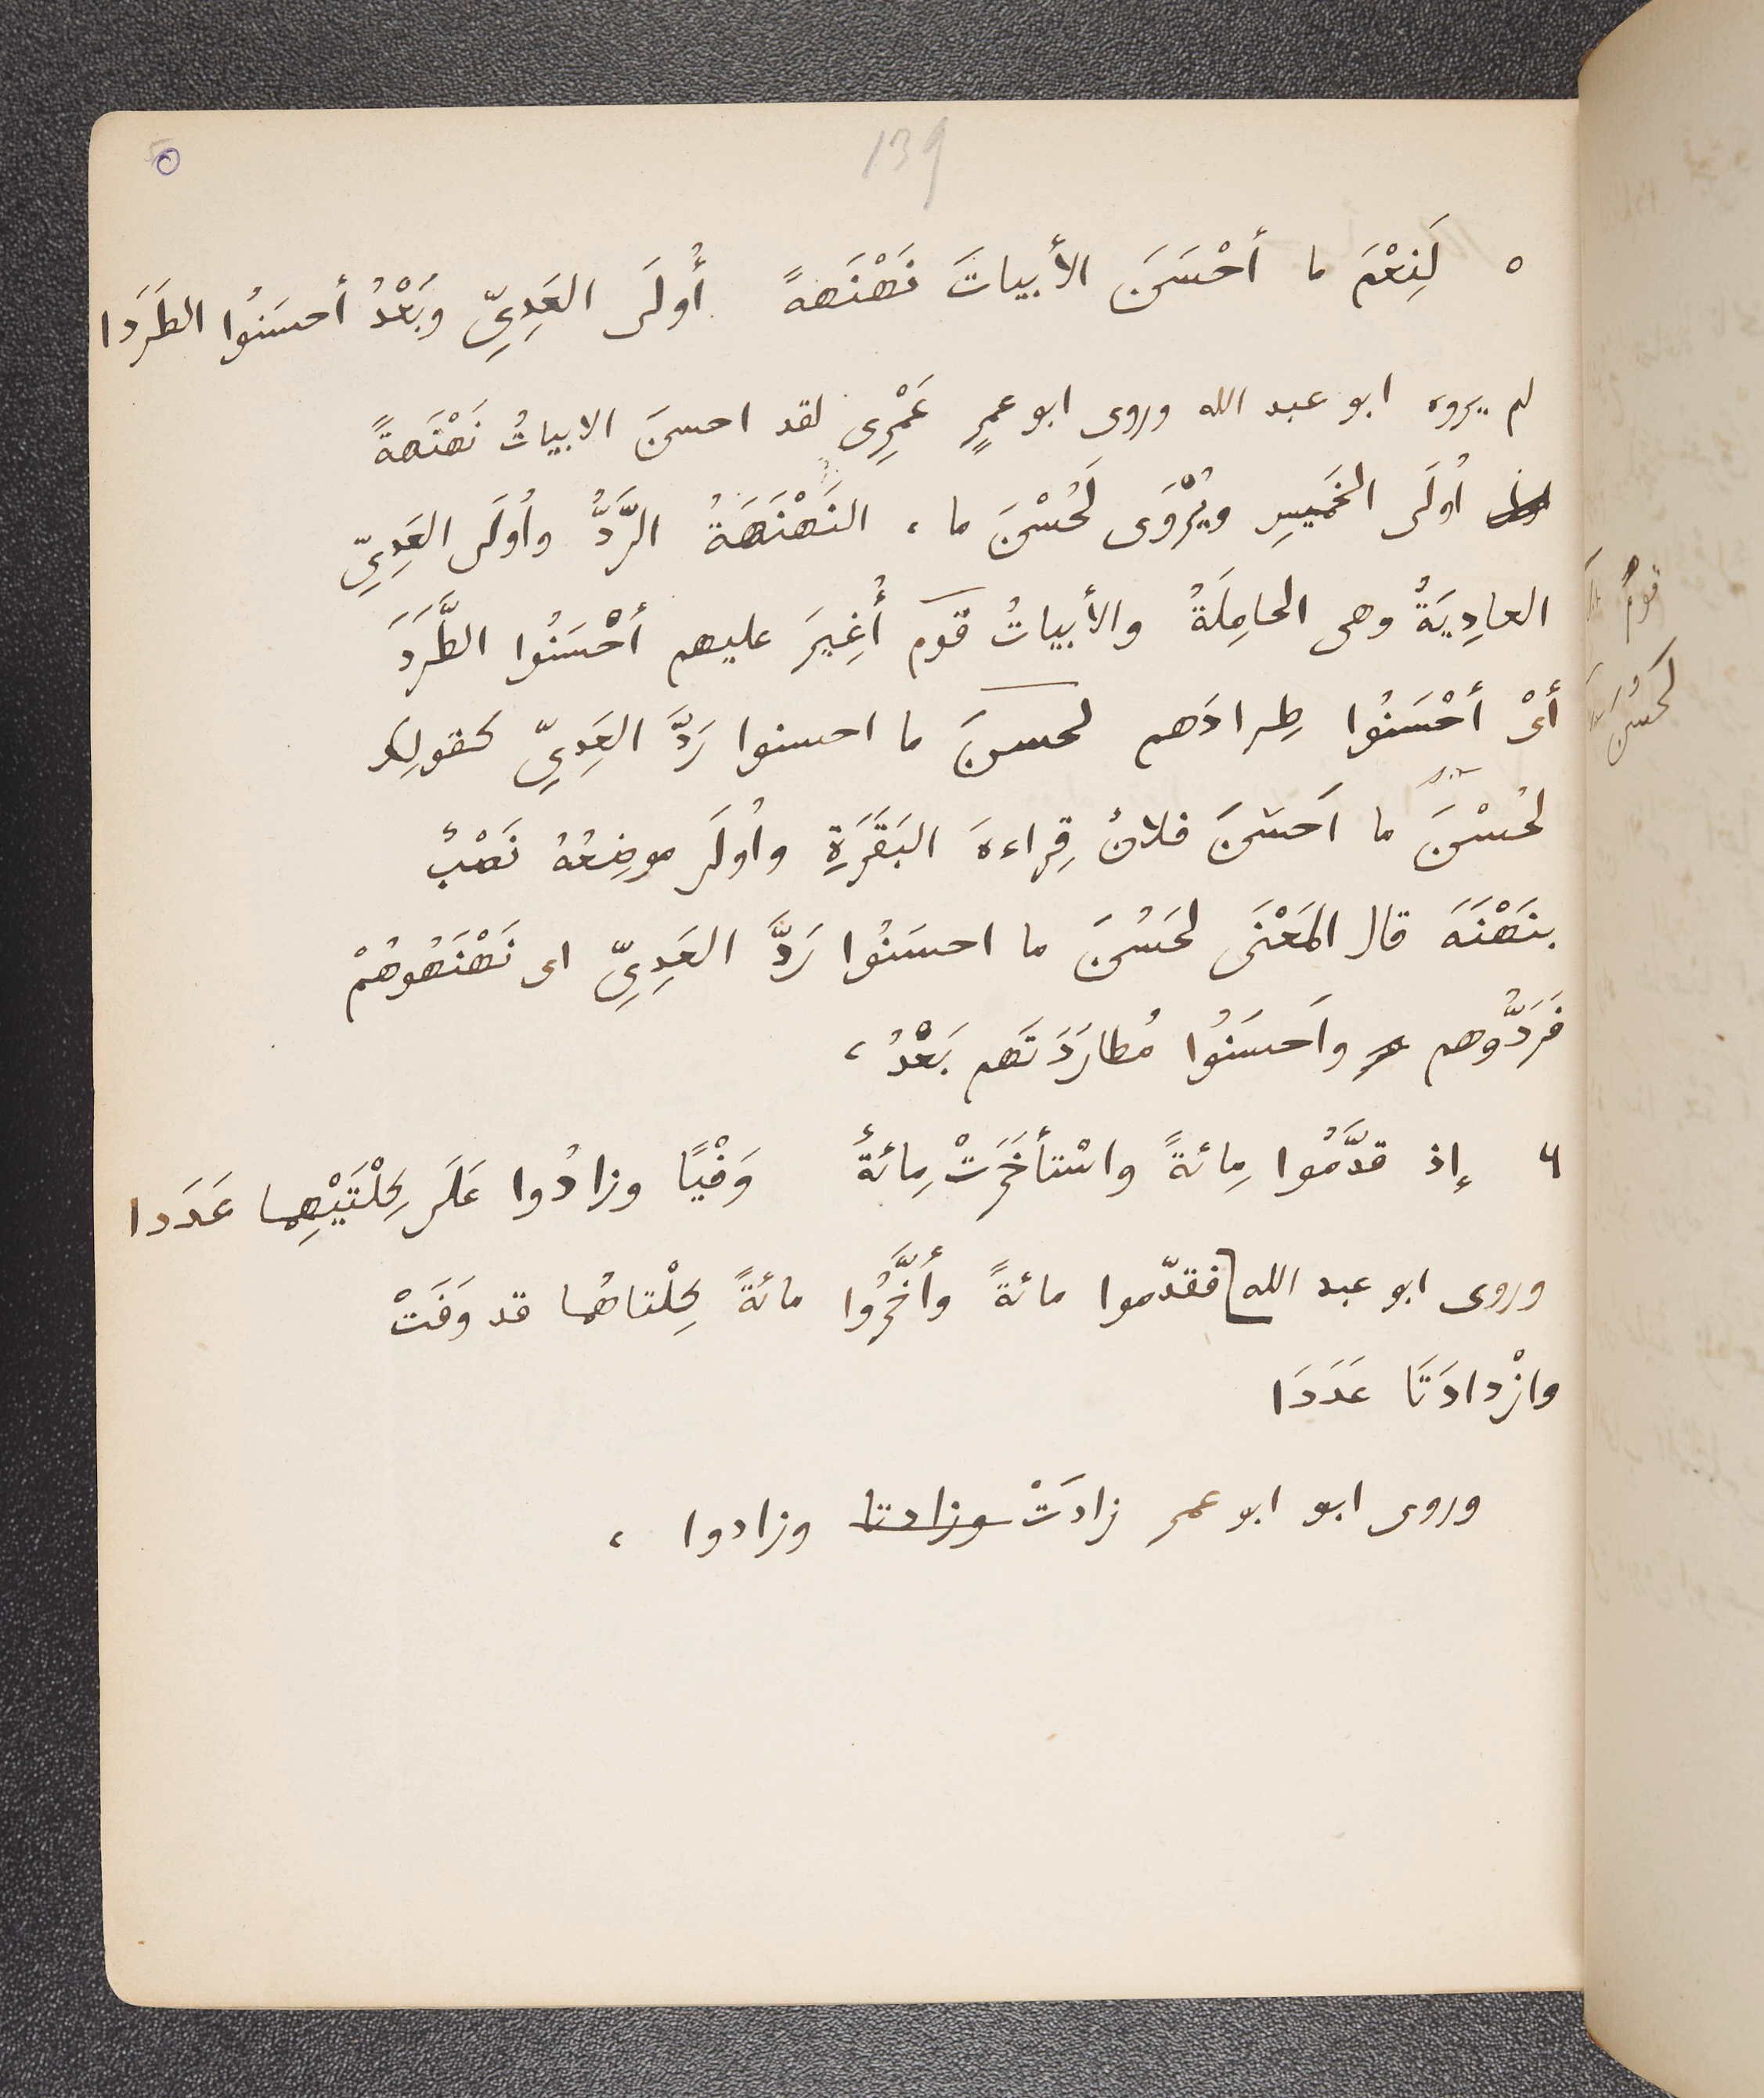 139
٥ لَنِعْمَ ما أحْسَنَ الأبياتَ نَهْنَهةً أُولَى العَدِيِّ وبَعْدُ أحسَنُوا الطَرَدَا
لم يروه ابو عبد الله وروى ابو عمرٍ عَمْرِى لقد احسنَ الابياتُ نَهْنَهةً
اُولَى الخَميسِ ويُرْوَى لَحُسْنَ ما ، النَهْنَهَةُ الرَّدُّ واُولَى العَدِيِّ
العادِيَةُ وهى الحامِلَةُ والأبياتُ قوم أُغِيرَ عليهم أحْسَنُوا الطَّرَدَ
أىْ أحْسَنُوا طِرادَهم لحسنَ ما احسنوا رَدَّ العَدِيِّ كقولك
لحُسْنَ ما اَحسَنَ فلانٌ قِراءةَ البَقَرَةِ واُولَى موضِعُهُ نَصْبٌ
بنَهْنَهَ قال المَعْنَى لحَسُنَ ما احسَنُوا رَدَّ العَدِيِّ اى نَهْنَهُوهُمْ
فَرَدُّوهم واَحسَنُوا مُطارَدَتَهم بَعْدُ ،
٦ إذ قدَّمُوا مِائةً واسْتأخَرَتْ مِائةٌ وَفْيًا وزادُوا عَلَى كِلْتَيْهِما عَدَدا
وروى ابو عبد الله فقدّموا مائةً وأخَّرُوا مائةً كِلْتاهُما قد وَفَتْ
وازْدادَتَا عَدَدَا
وروى ابو ابو عمرٍ زادَتْ وزادتا وزادوا ،
قومٌ
لَحُسْنَ